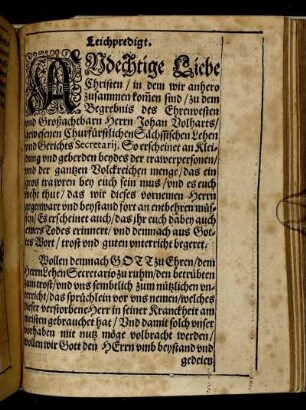 Leichpredigt.
ANdechtige Liebe
Christen / in dem wir anhero
zusammen kom̃en sind / zu dem
Begrebnis des Ehrenvesten
vnd Großachtbarn Herrn Johan Volharts /
gewesenen Churfürstlichen Sächsischen Lehen
vnd Geriches Secretarij. So erscheinet an Klei-
dung vnd geberden beydes der trawerpersonen /
vnd der gantzen Volckreichen menge / das ein
gros trawren bey euch sein mus / vnd es euch
recht thut / das wir dieses vornemen Herrn
gegenwart vnd beystand fort an entbehren müs-
sen / Es erscheinet auch / das jhr euch dabey auch
ewers Todes erinnert / vnd demnach aus Got-
tes Wort / trost vnd guten vnterricht begeret.
Wollen demnach GOTT zu Ehren / dem
Herrn Lehen Secretario zu ruhm / den betrübten
zum trost / vnd vns semblich zum nützlichen vn-
terricht / das sprüchlein vor vns nemen / welches
dieser verstorbene Herr in seiner Kranckheit am
meisten gebrauchet hat / Vnd damit solch vnser
vorhaben mit nutz möge volbracht werden /
wollen wir Gott den HErrn vmb beystand vnd
gedeien